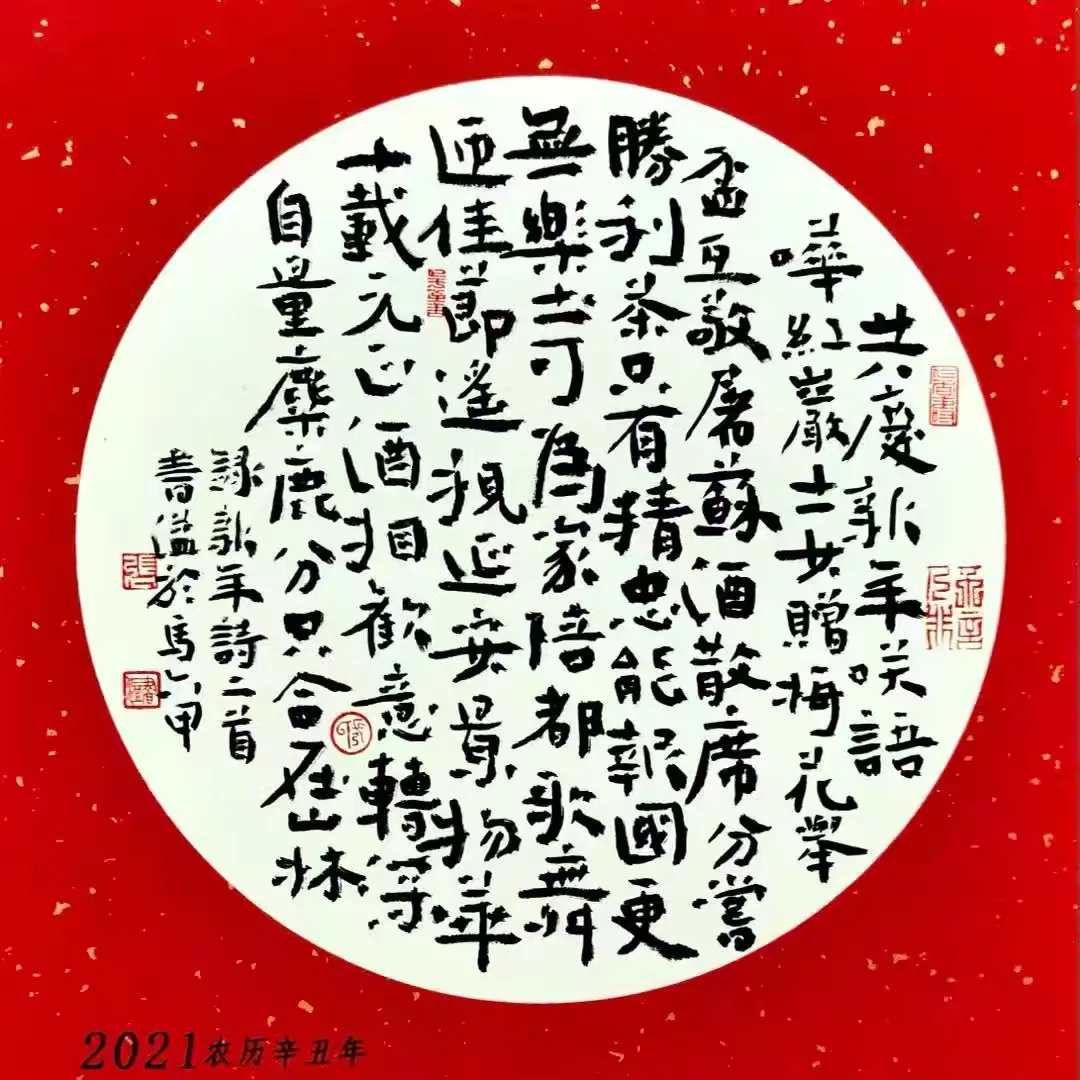 共慶新年笑語
嘩紅巖士女贈梅花舉
盃互敬屠蘇酒散席分嘗
勝利茶只有精忠能報國更
無樂土可為家陪都歌舞
迎佳節遙祝延安景物華
十載元正酒相歡意轉深
自量麋鹿分只合在山林
錄新年詩二首
書溢於馬六甲
張
2021农历辛丑年